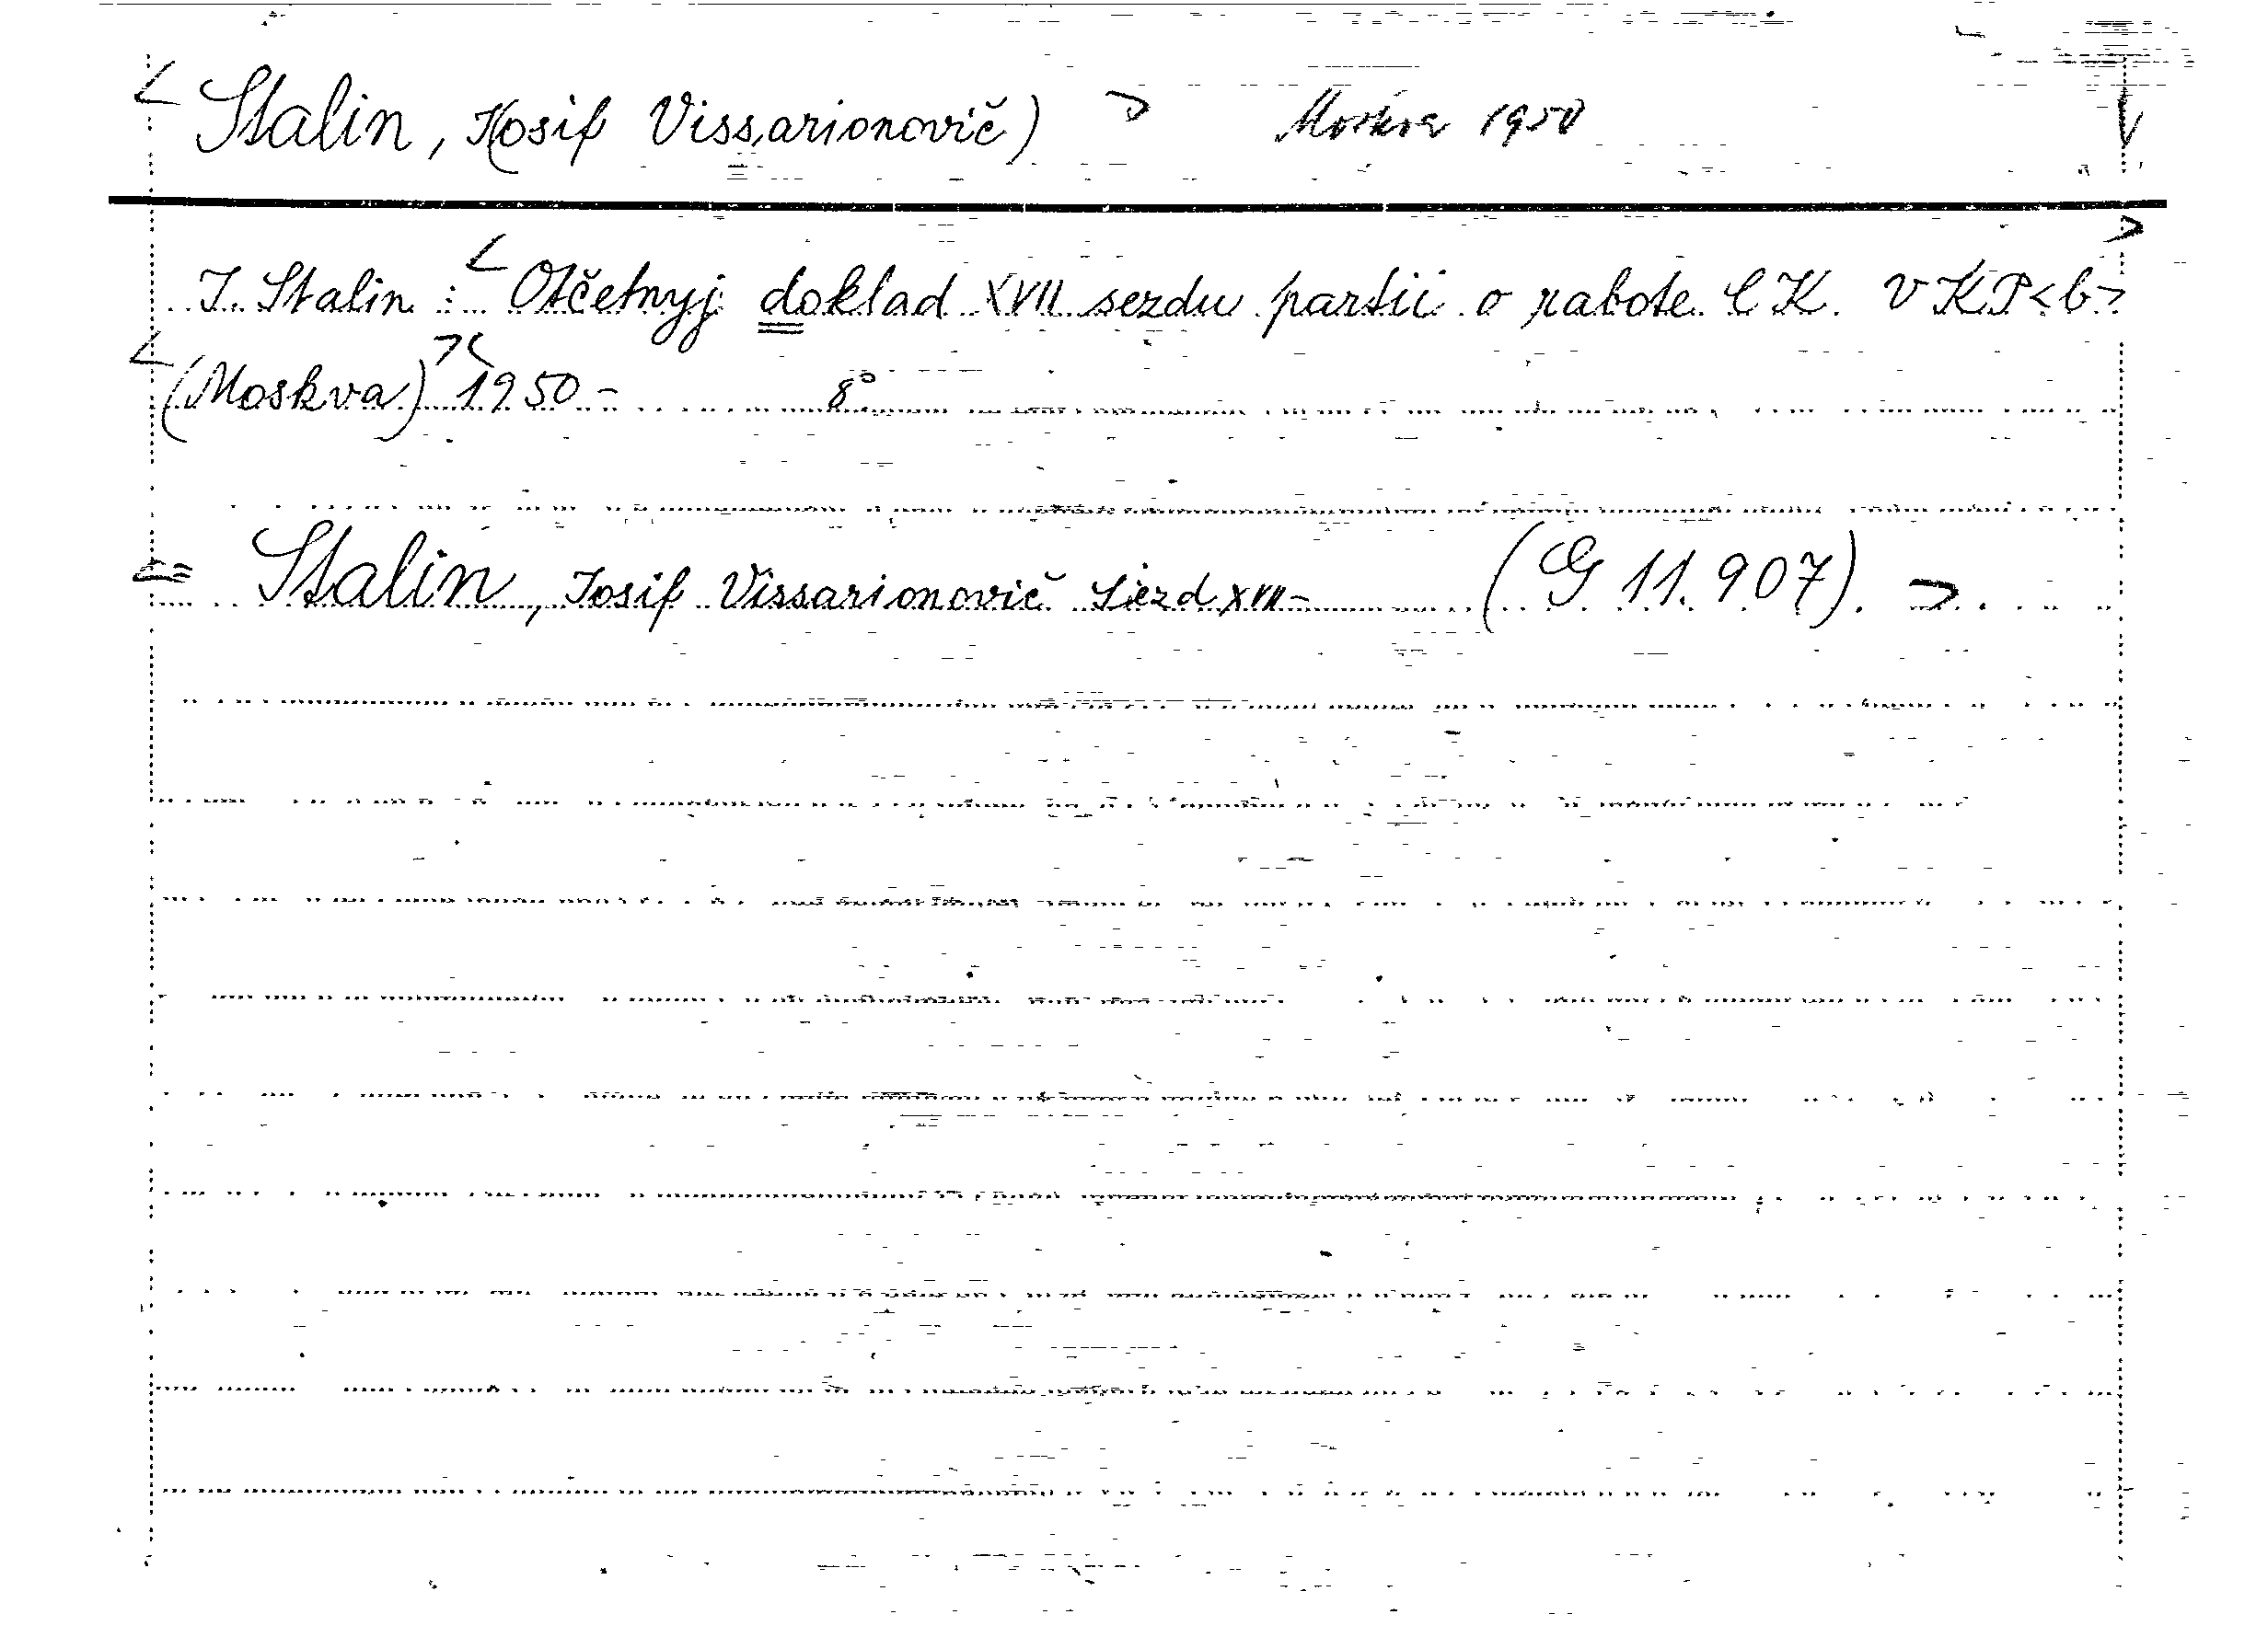 < Stalin, J(osif Vissarionovič) > Moskva 1950 V
J. Stalin : < Otčetnyj doklad XVII sezdu partii o rabote CK VKP<b> >
< (Moskva) >< 1950 - 8°
= Stalin, Josif Vissarionovič Sjezd XVII - (G 11.907). >